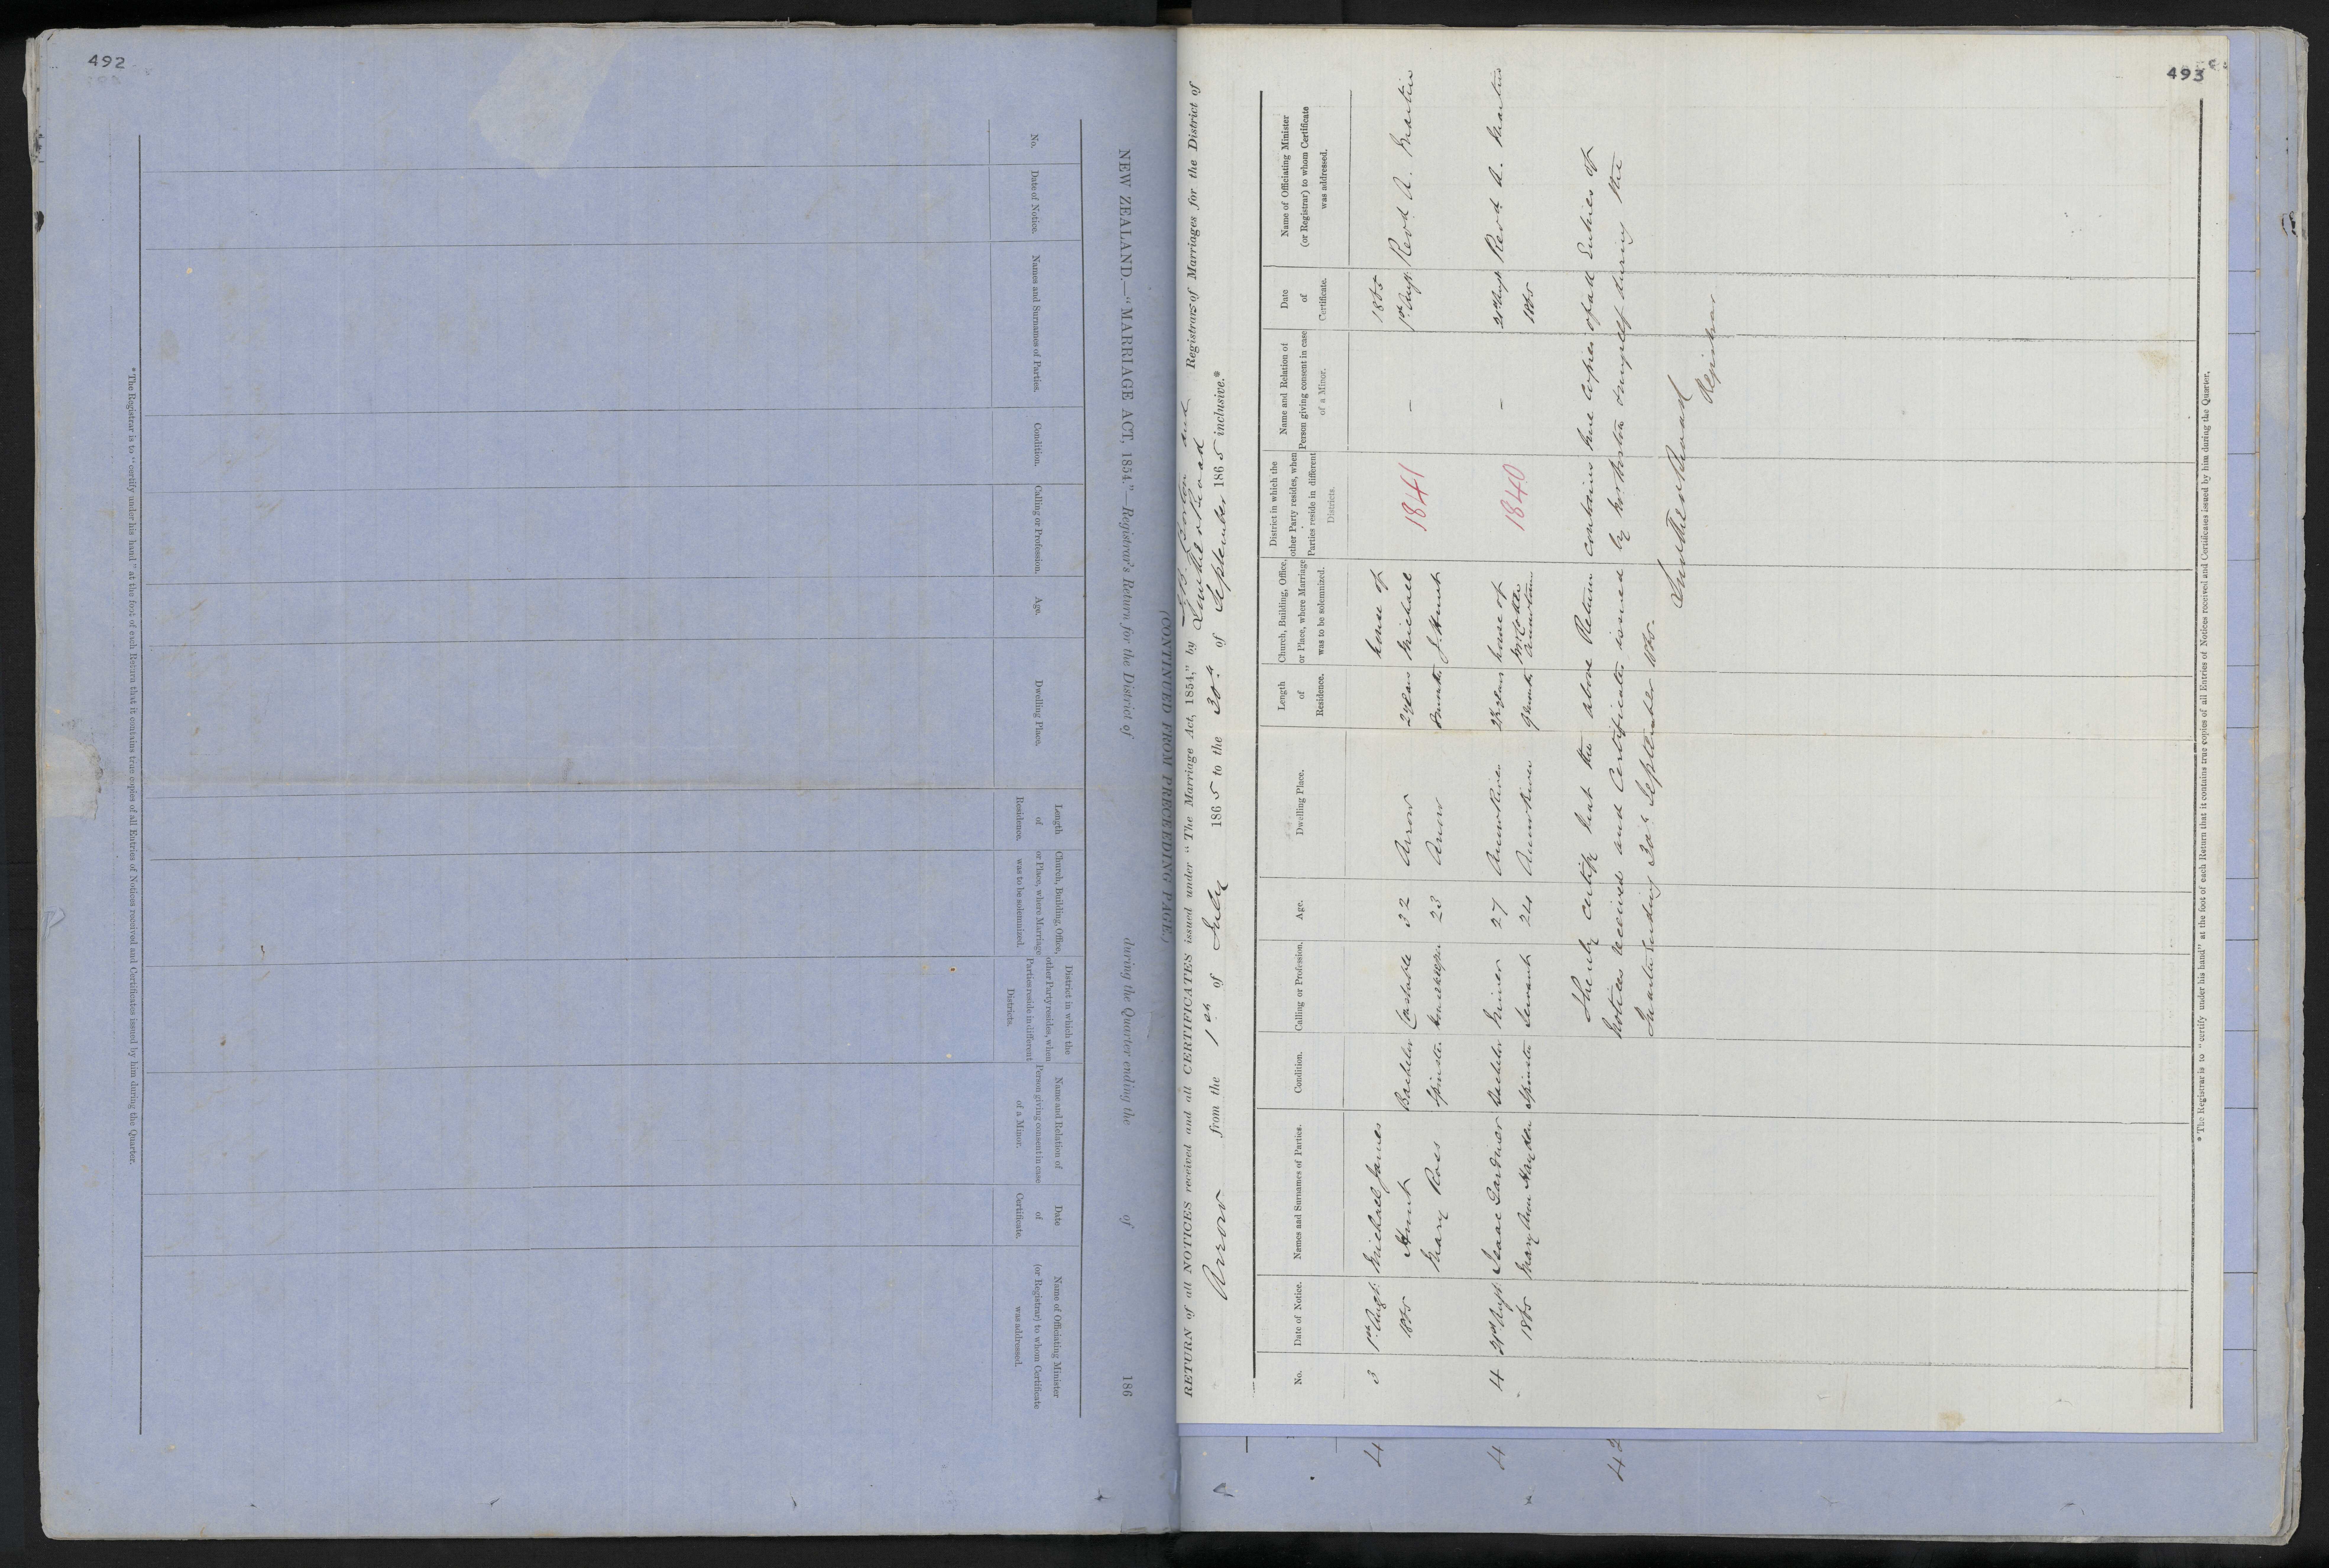 492
NEW ZEALAND.—"MARRIAGE ACT, 1854."—Registrar's Return for the District of during the Quarter ending the of 186
No.
Date of Notice.
Names and Surnames of Parties.
Condition.
Calling or Profession.
Age.
Dwelling Place.
Length
of
Residence.
Church, Building, Office,
or Place, where Marriage
was to be solemnized.
District in which the
other Party resides, when
Parties reside in different
Districts.
Name and Relation of
Person giving consent in case
of a Minor.
Date
of
Certificate.
Name of Officiating Minister
(or Registrar) to whom Certificate
was addressed.
* The Registrar is to "certify under his hand" at the foot of each Return that it contains true copies of all Entries of Notices received and Certificates issued by him during the Quarter.
(CONTINUED FROM PRECEEDING PAGE.)
493
RETURN of all NOTICES received and all CERTIFICATES issued under "The Marriage Act, 1854," by Registrars of Marriages for the District of
Arrow from the 1st of July 1865 to the 30th of September 1865 inclusive.*
No.
Date of Notice.
Names and Surnames of Parties.
Condition.
Calling or Profession.
Age.
Dwelling Place.
Length
of
Residence.
Church, Building, Office,
or Place, where Marriage
was to be solemnized.
District in which the
other Party resides, when
Parties reside in different
Districts.
Name and Relation of
Person giving consent in case
of a Minor.
Date
of
Certificate.
Name of Officiating Minister
(or Registrar) to whom Certificate
was addressed.
3 1st Augt. Michael James Hunt Bachelor Constable 32 Arrow 2 years house of Michael J. Hunt 1841 – 1865 1st Augt. Revd. A. Martin
1865 Mary Ross Spinster housekeeper 23 Arrow
4 Augt. Isaac Gardiner Bachelor Miner 27 Arrow River house of 1840 – Augt Revd. A. Martin
1865 Mary Ann Hayden Spinster Servant 24 Arrow River 9 months 1865
I hereby certify that the above Return contains true copies of all Entries of
Notices received and Certificates issued by myself during the
Quarter ending 30th September 1865.
Registrar
* The Registrar is to "certify under his hand" at the foot of each Return that it contains true copies of all Entries of Notices received and Certificates issued by him during the Quarter.
4
4
42